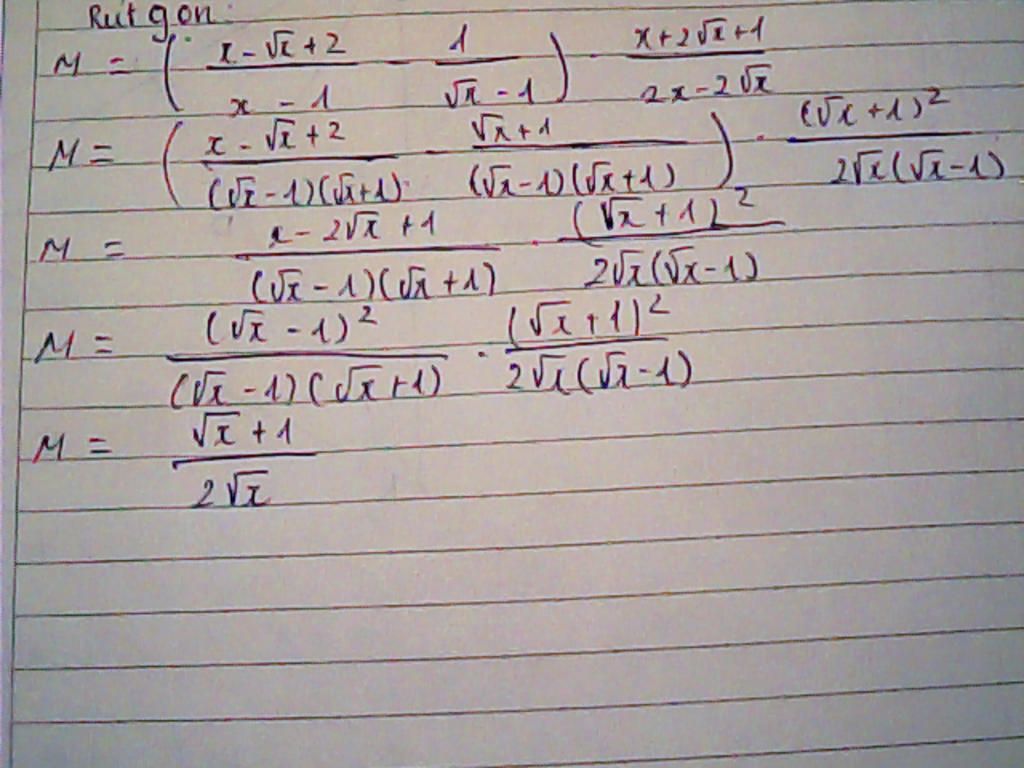 Rut gon:
M = ( (x - √x + 2)/(x - 1) - 1/(√x - 1) ) . (x + 2√x + 1)/(2x - 2√x)
M = ( (x - √x + 2)/((√x - 1)(√x + 1)) - (√x + 1)/((√x - 1)(√x + 1)) ) . (√x + 1)²/(2√x(√x - 1))
M = (x - 2√x + 1)/((√x - 1)(√x + 1)) . (√x + 1)²/(2√x(√x - 1))
M = (√x - 1)²/((√x - 1)(√x + 1)) . (√x + 1)²/(2√x(√x - 1))
M = (√x + 1)/(2√x)